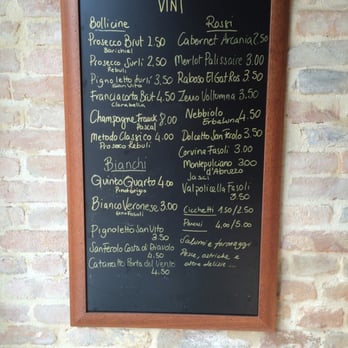 VINI
Bollicine
Prosecco Brut 2.50
Barichel
Prosecco Surli 3.50
Rebuli
Pignoletto surli 3.50
San Vito
Franciacorta Brut 4.50
Clarabella
Champagne Franck 8.00
Pascal
Metodo Classico 4.00
Prosecco Rebuli
Bianchi
Quinto Quarto 4.00
Pinot Grigio
Bianco Veronese 3.00
Fasoli
Pignoletto San Vito
3.50
San Ferolo Costa di Diavolo
4.50
Catarratto Porta del Vento
4.50
Rossi
Cabernet Arcania 3.50
Merlot Palissaire 3.00
Raboso El Gat Ros 3.50
Zero Voltomna 3.50
Nebbiolo
Erbaluna 4.00
Dolcetto San Fereolo 3.50
Corvina Fasoli 3.00
Montepulciano 3.00
d'Abruzzo
Jasci
Valpolicella Fasoli
3.50
Cicchetti 1.50/2.50
Panini 4.00/5.00
Salumi e formaggi
Pesce, ostriche e
altre delizie....